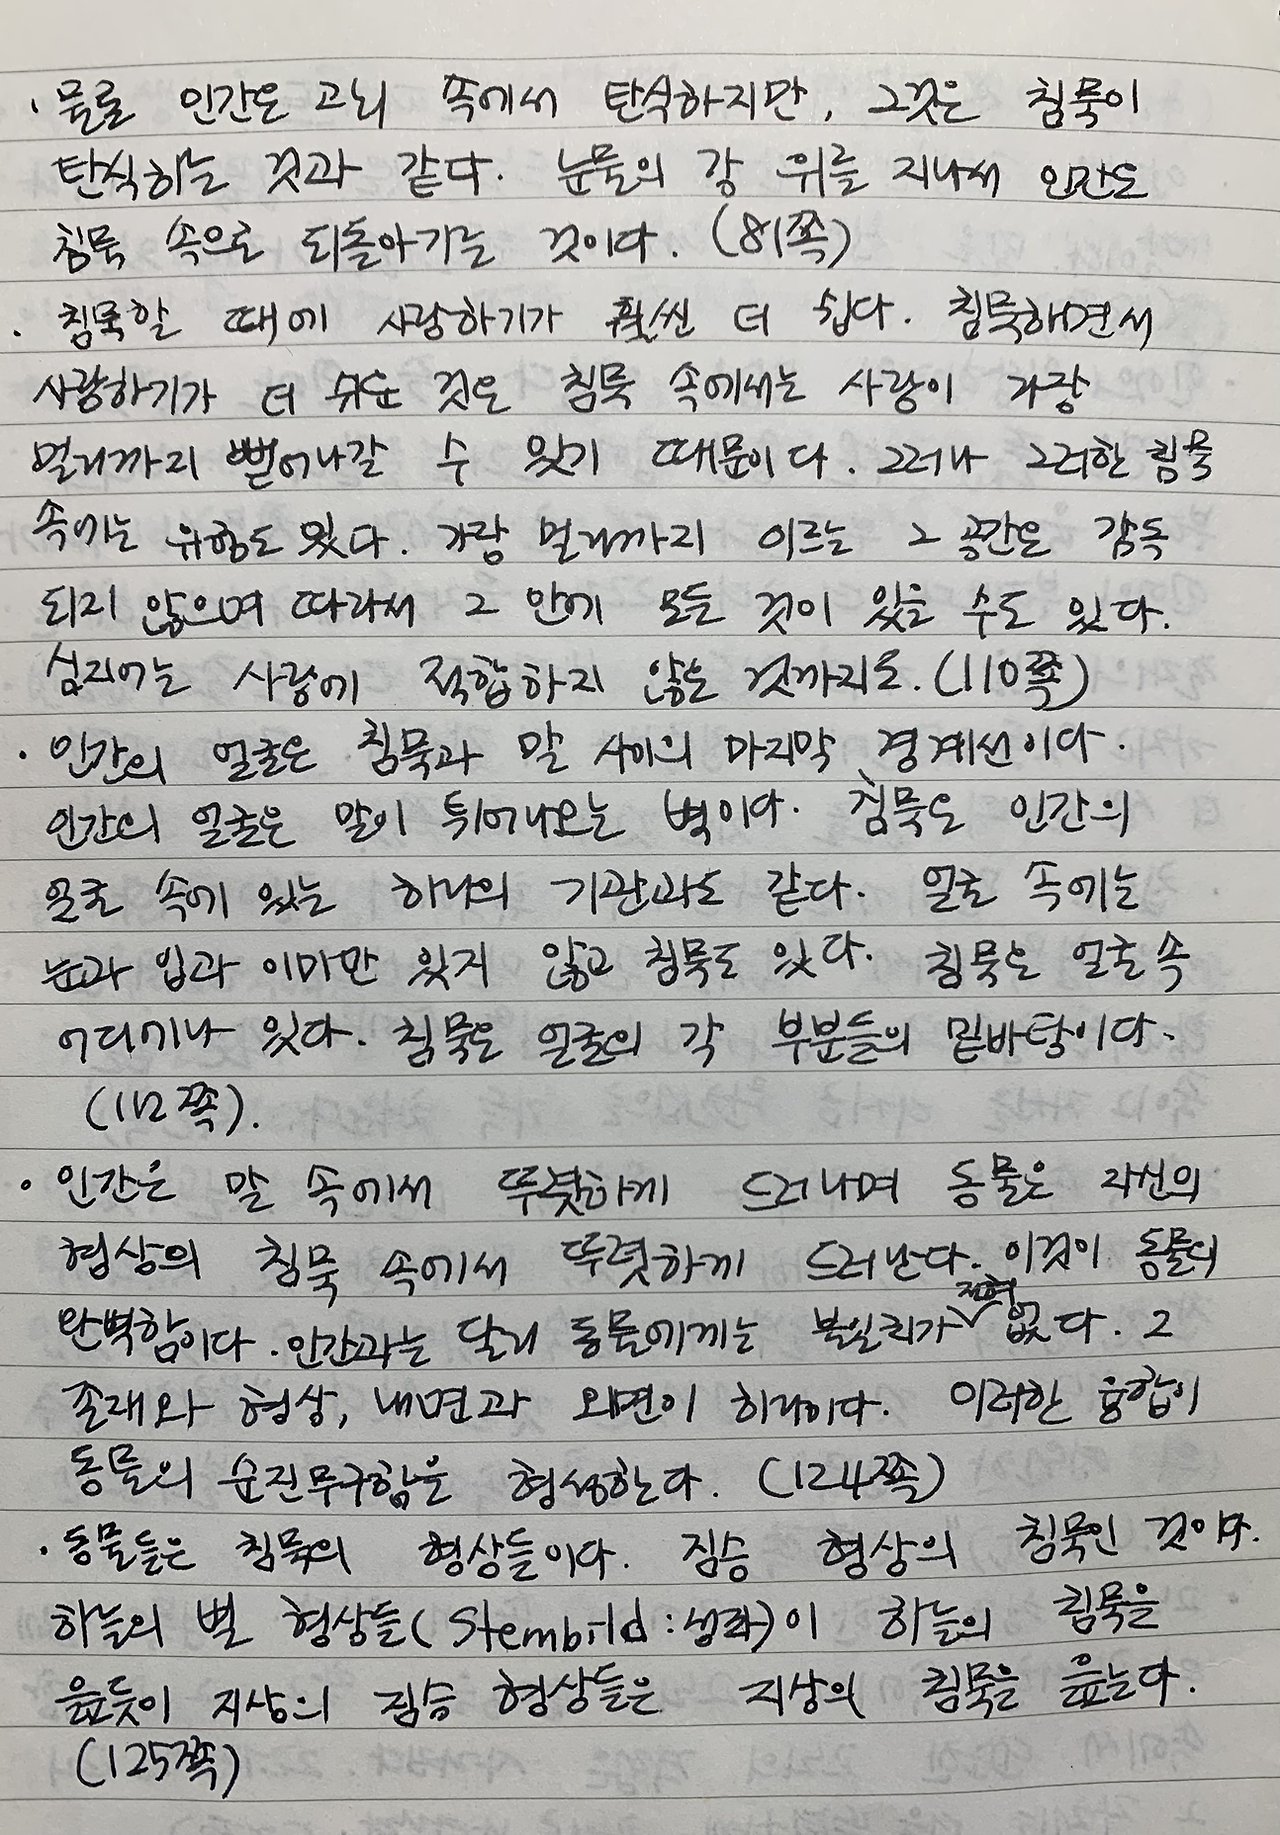 · 물론 인간은 고뇌 속에서 탄식하지만, 그것은 침묵이
탄식하는 것과 같다. 눈물의 강 위를 지나서 인간도
침묵 속으로 되돌아가는 것이다. (81쪽)
· 침묵할 때에 사랑하기가 훨씬 더 쉽다. 침묵하면서
사랑하기가 더 쉬운 것은 침묵 속에서는 사랑이 가장
멀리까지 뻗어나갈 수 있기 때문이다. 그러나 그러한 침묵
속에는 위험도 있다. 가장 멀리까지 이르는 그 공간은 감독
되지 않으며 따라서 그 안에 모든 것이 있을 수도 있다.
심지어는 사랑에 적합하지 않은 것까지도. (110쪽)
· 인간의 얼굴은 침묵과 말 사이의 마지막 경계선이다.
인간의 얼굴은 말이 튀어나오는 벽이다. 침묵도 인간의
얼굴 속에 있는 하나의 기관과도 같다. 얼굴 속에는
눈과 입과 이마만 있지 않고 침묵도 있다. 침묵은 얼굴 속
어디에나 있다. 침묵은 얼굴의 각 부분들의 밑바탕이다.
(112쪽).
· 인간은 말 속에서 뚜렷하게 드러나며 동물은 자신의
형상의 침묵 속에서 뚜렷하게 드러난다. 이것이 동물의
완벽함이다. 인간과는 달리 동물에게는 불일치가 전혀 없다. 그
존재와 형상, 내면과 외면이 하나이다. 이러한 융합이
동물의 순진무구함을 형성한다. (124쪽)
· 동물들은 침묵의 형상들이다. 짐승 형상의 침묵인 것이다.
하늘의 별 형상들(Sternbild : 성좌)이 하늘의 침묵을
읊듯이 지상의 짐승 형상들은 지상의 침묵을 읊는다.
(125쪽)